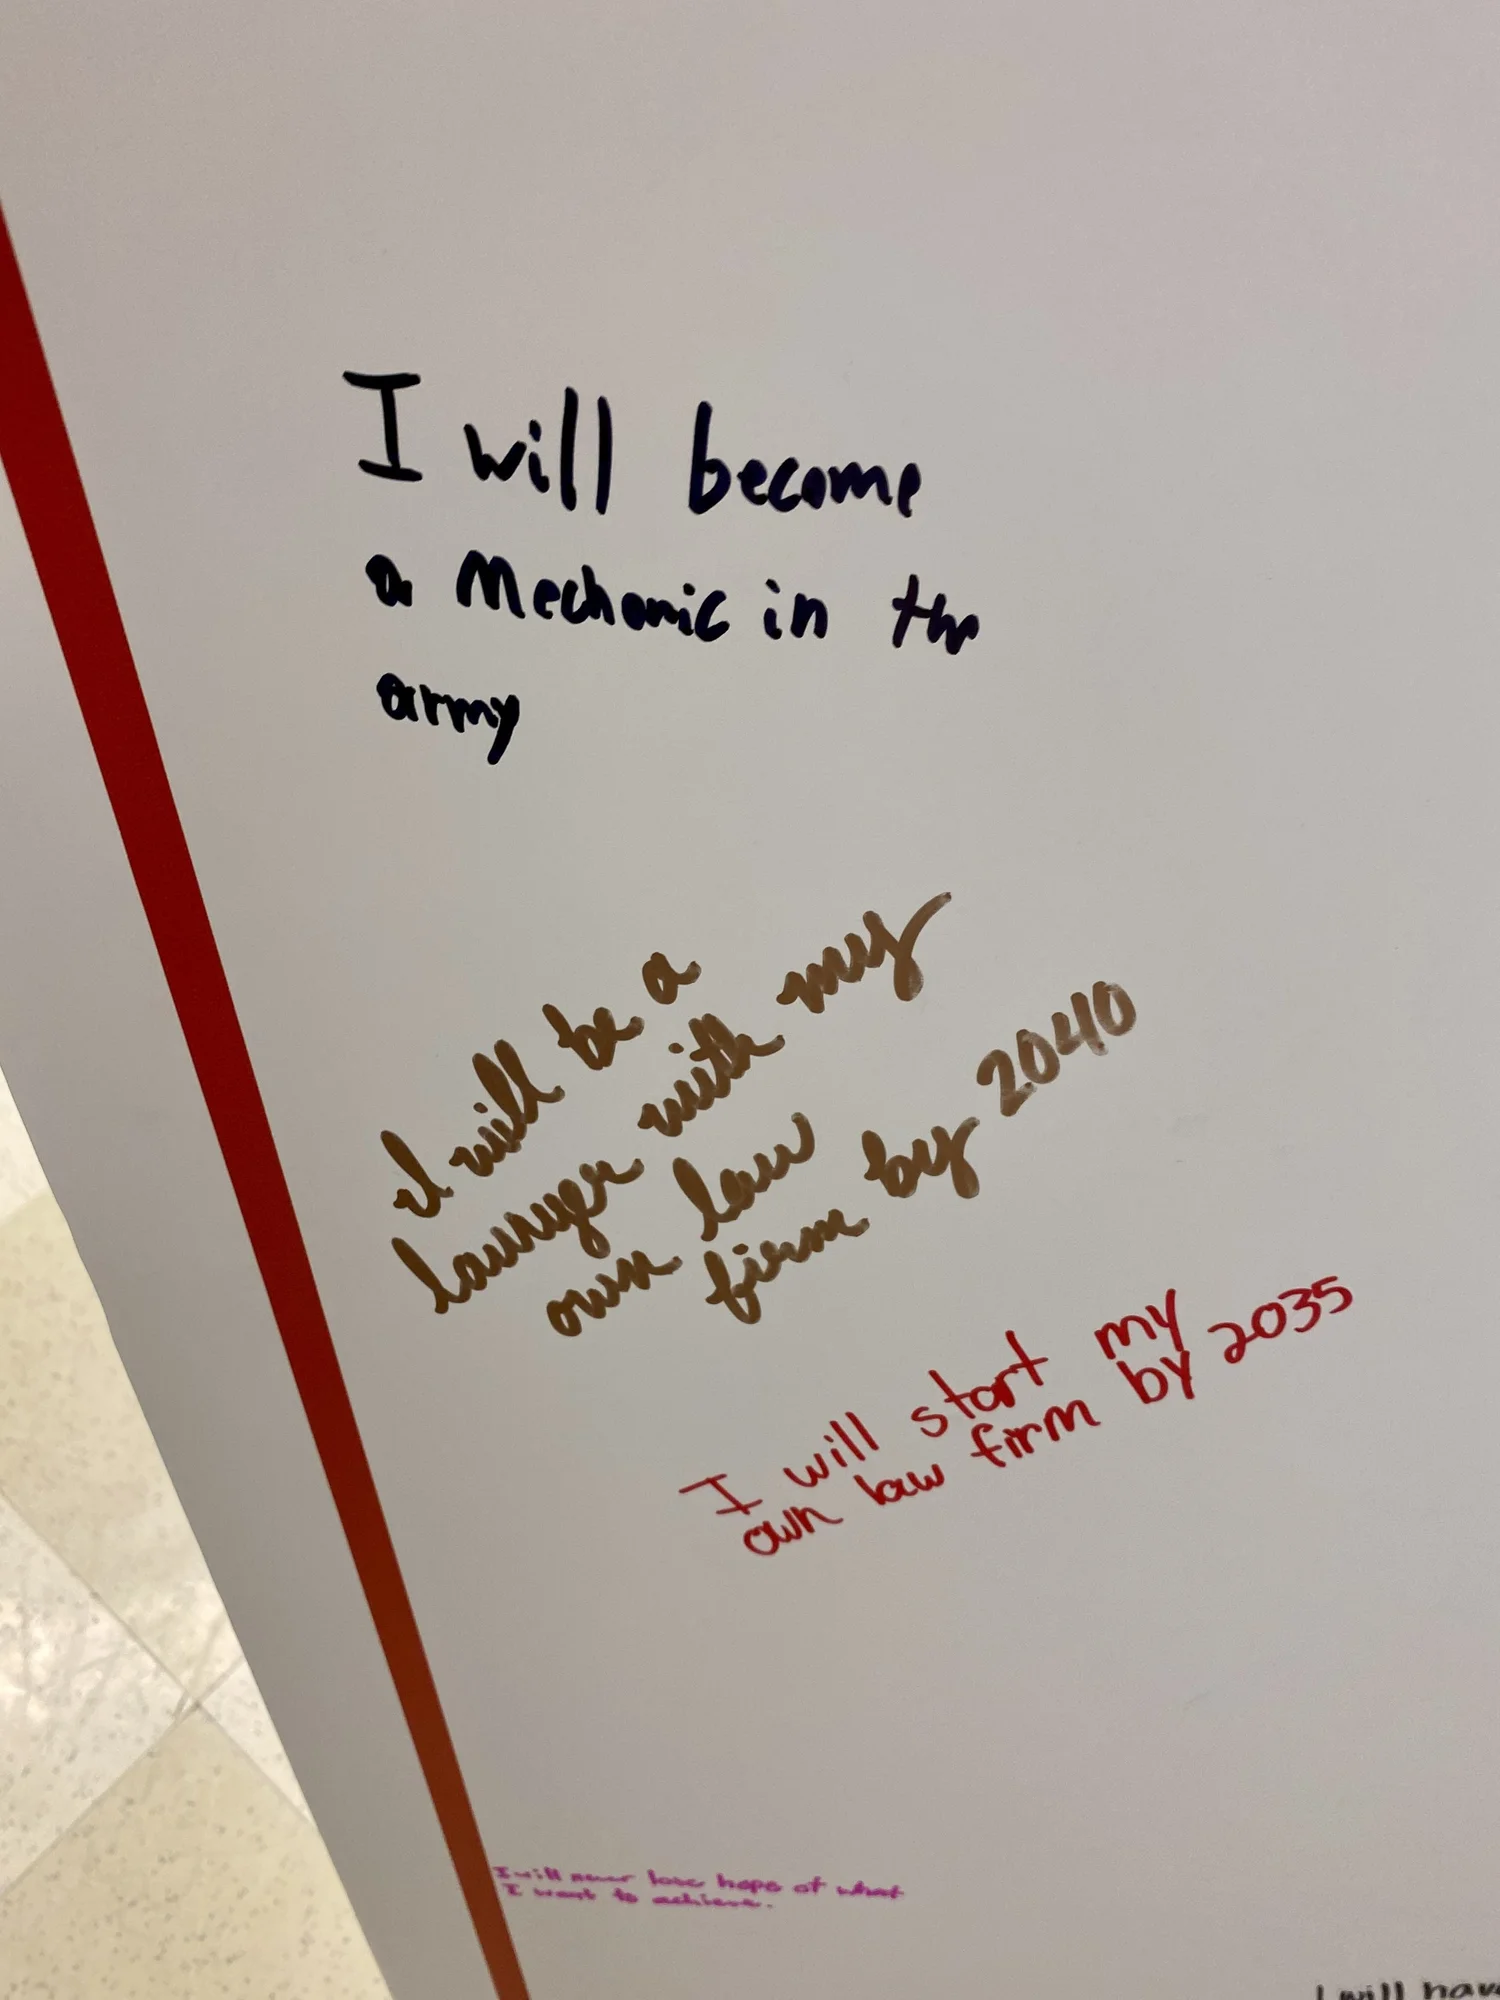 I will become
a Mechanic in the
army
I will be a
lawyer with my
own law
firm by 2040
I will start my
own law firm by 2035
I will never lose hope of what
I want to achieve.
I will hav